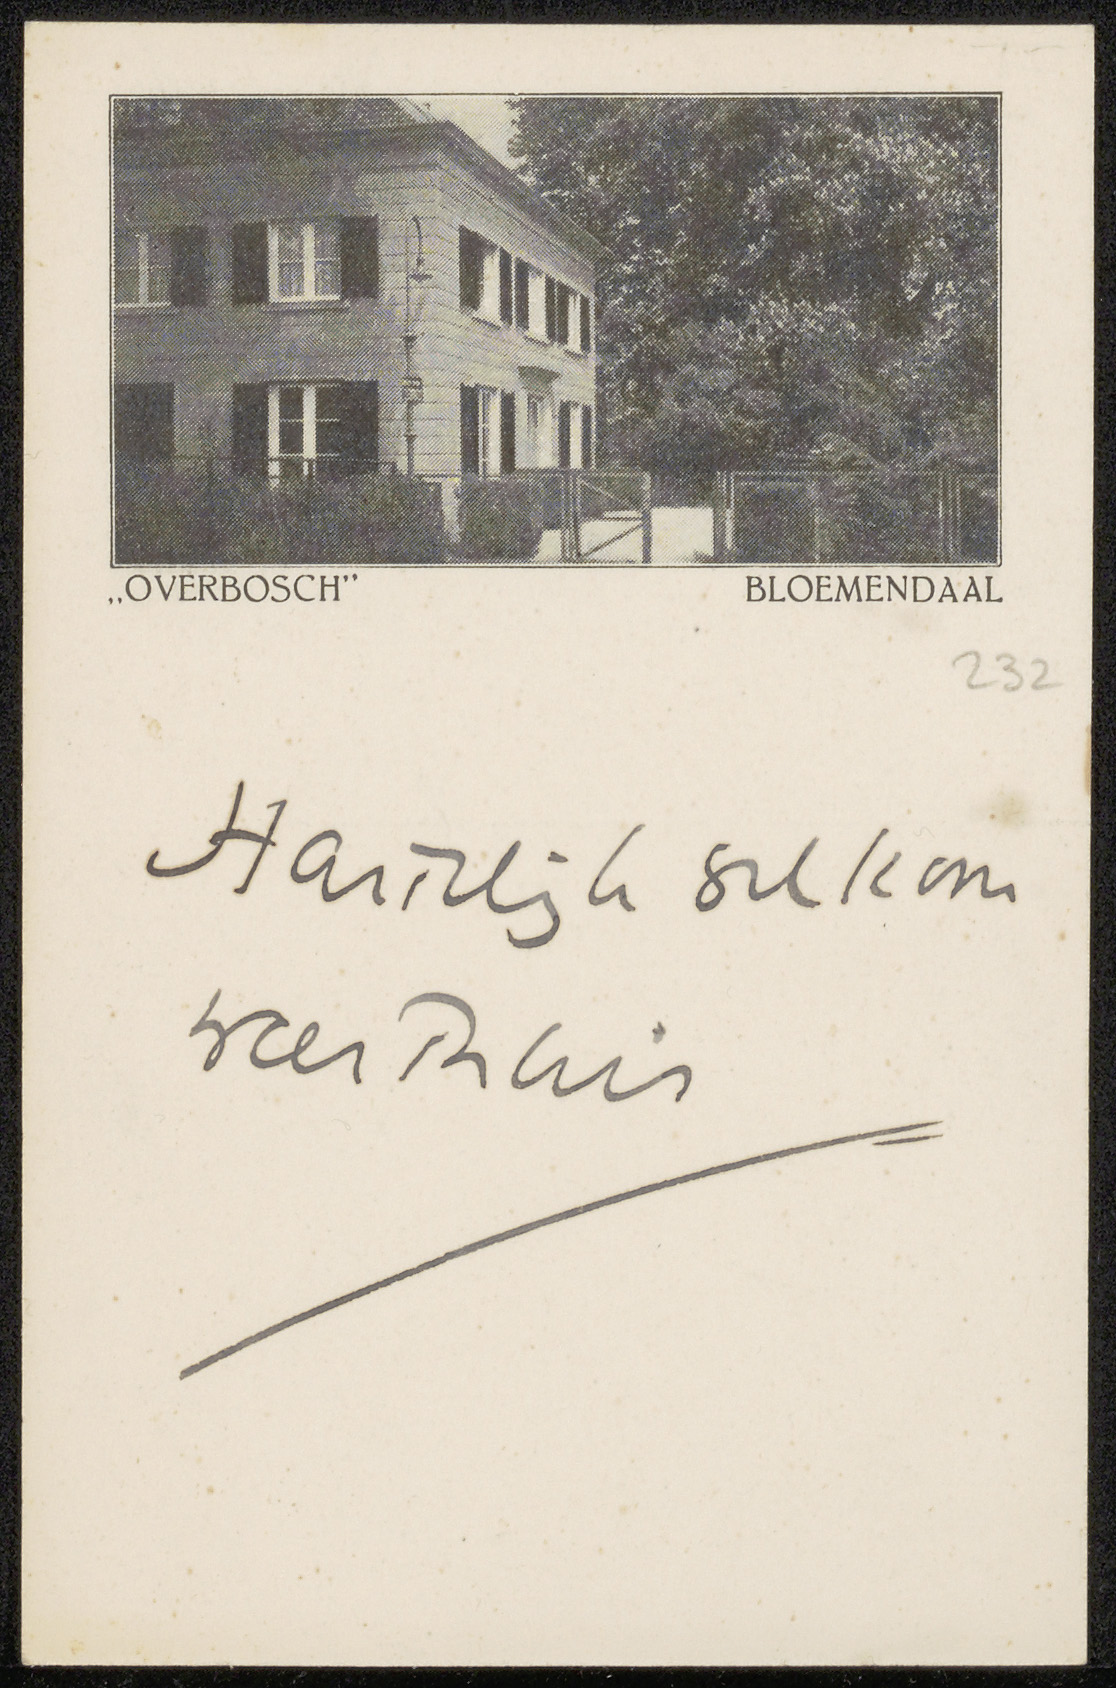 „OVERBOSCH”
BLOEMENDAAL
232
Hartelijk welkom
weer Thuis